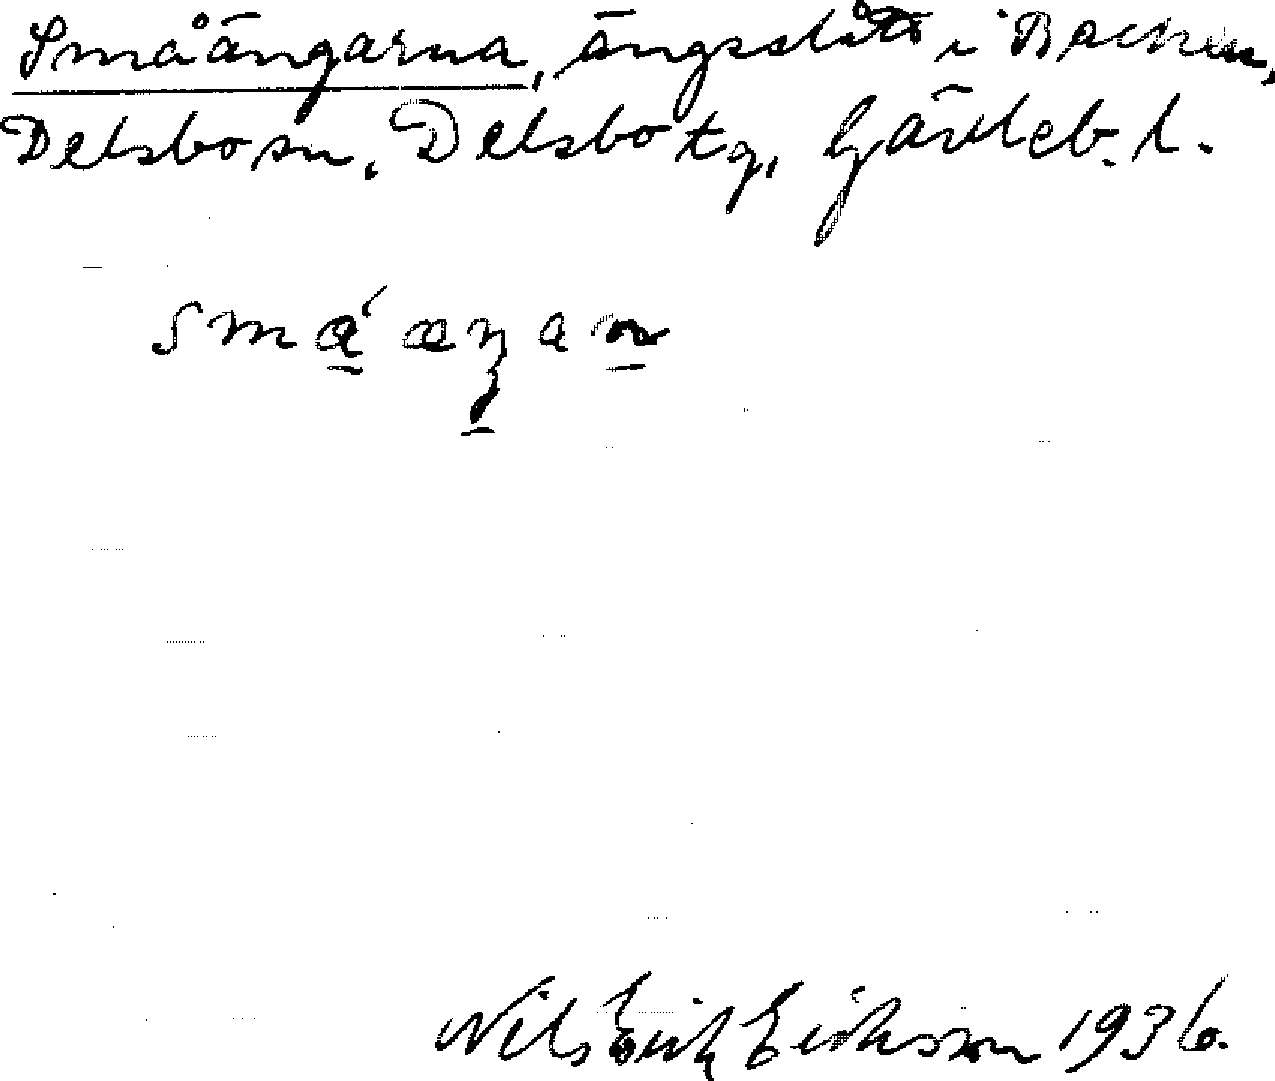 Småängarna, ängsslått i Backen,
Delsbo sn, Delsbo tg, Gävleb. l.
Nils Erik Eriksson 1936.